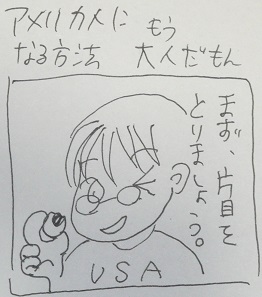 アメリカメに
なる方法
もう
大人だもん
まず、片目を
とりましょう。
USA